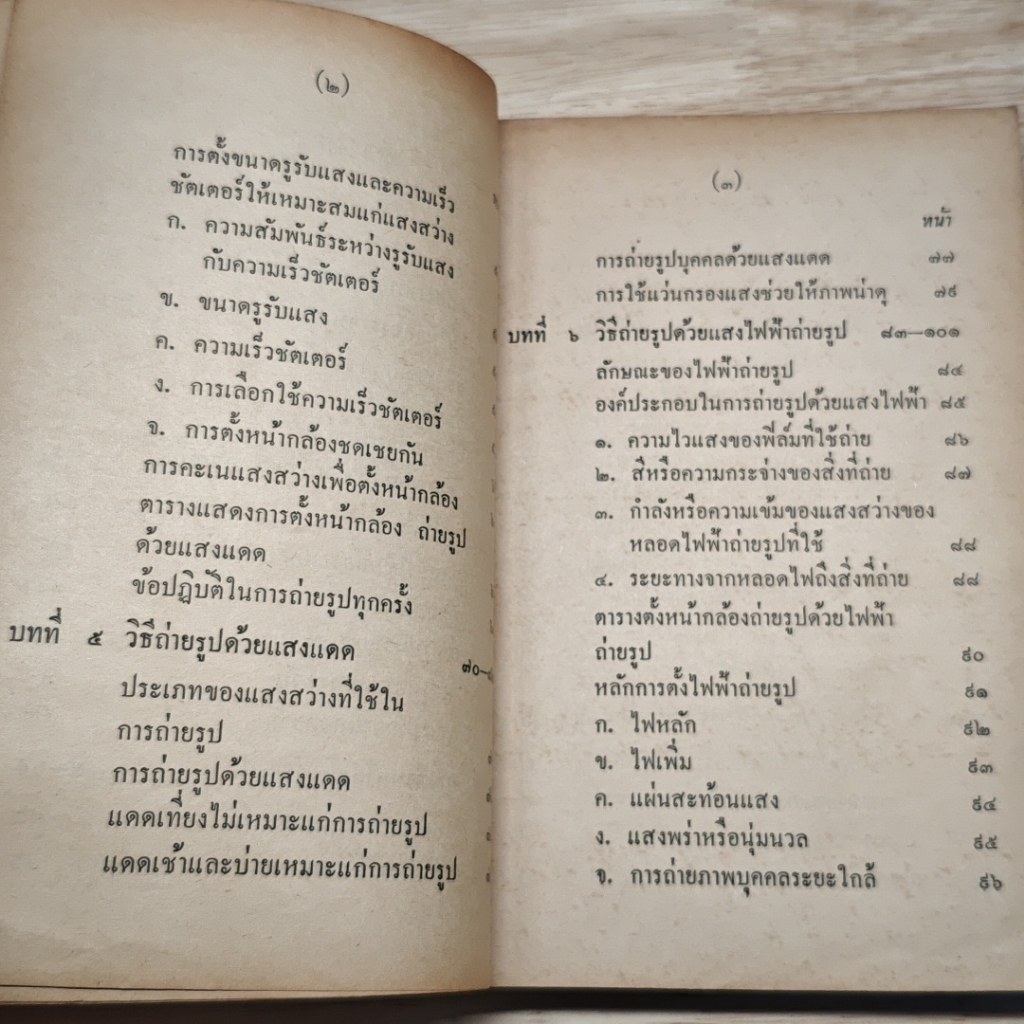 (๒)
การตั้งขนาดรูรับแสงและความเร็ว
ชัตเตอร์ให้เหมาะสมแก่แสงสว่าง
ก. ความสัมพันธ์ระหว่างรูรับแสง
กับความเร็วชัตเตอร์
ข. ขนาดรูรับแสง
ค. ความเร็วชัตเตอร์
ง. การเลือกใช้ความเร็วชัตเตอร์
จ. การตั้งหน้ากล้องชดเชยกัน
การคะเนแสงสว่างเพื่อตั้งหน้ากล้อง
ตารางแสดงการตั้งหน้ากล้อง ถ่ายรูป
ด้วยแสงแดด
ข้อปฏิบัติในการถ่ายรูปทุกครั้ง
บทที่ ๕ วิธีถ่ายรูปด้วยแสงแดด ๗๐—
ประเภทของแสงสว่างที่ใช้ใน
การถ่ายรูป
การถ่ายรูปด้วยแสงแดด
แดดเที่ยงไม่เหมาะแก่การถ่ายรูป
แดดเช้าและบ่ายเหมาะแก่การถ่ายรูป
(๓)
หน้า
การถ่ายรูปบุคคลด้วยแสงแดด ๗๗
การใช้แว่นกรองแสงช่วยให้ภาพน่าดู ๗๙
บทที่ ๖ วิธีถ่ายรูปด้วยแสงไฟฟ้าถ่ายรูป ๘๓—๑๐๑
ลักษณะของไฟฟ้าถ่ายรูป ๘๔
องค์ประกอบในการถ่ายรูปด้วยแสงไฟฟ้า ๘๕
๑. ความไวแสงของฟิล์มที่ใช้ถ่าย ๘๖
๒. สีหรือความกระจ่างของสิ่งที่ถ่าย ๘๗
๓. กำลังหรือความเข้มของแสงสว่างของ
หลอดไฟฟ้าถ่ายรูปที่ใช้ ๘๘
๔. ระยะทางจากหลอดไฟถึงสิ่งที่ถ่าย ๘๘
ตารางตั้งหน้ากล้องถ่ายรูปด้วยไฟฟ้า
ถ่ายรูป ๙๐
หลักการตั้งไฟฟ้าถ่ายรูป ๙๑
ก. ไฟหลัก ๙๒
ข. ไฟเพิ่ม ๙๓
ค. แผ่นสะท้อนแสง ๙๔
ง. แสงพร่าหรือนุ่มนวล ๙๕
จ. การถ่ายภาพบุคคลระยะใกล้ ๙๖